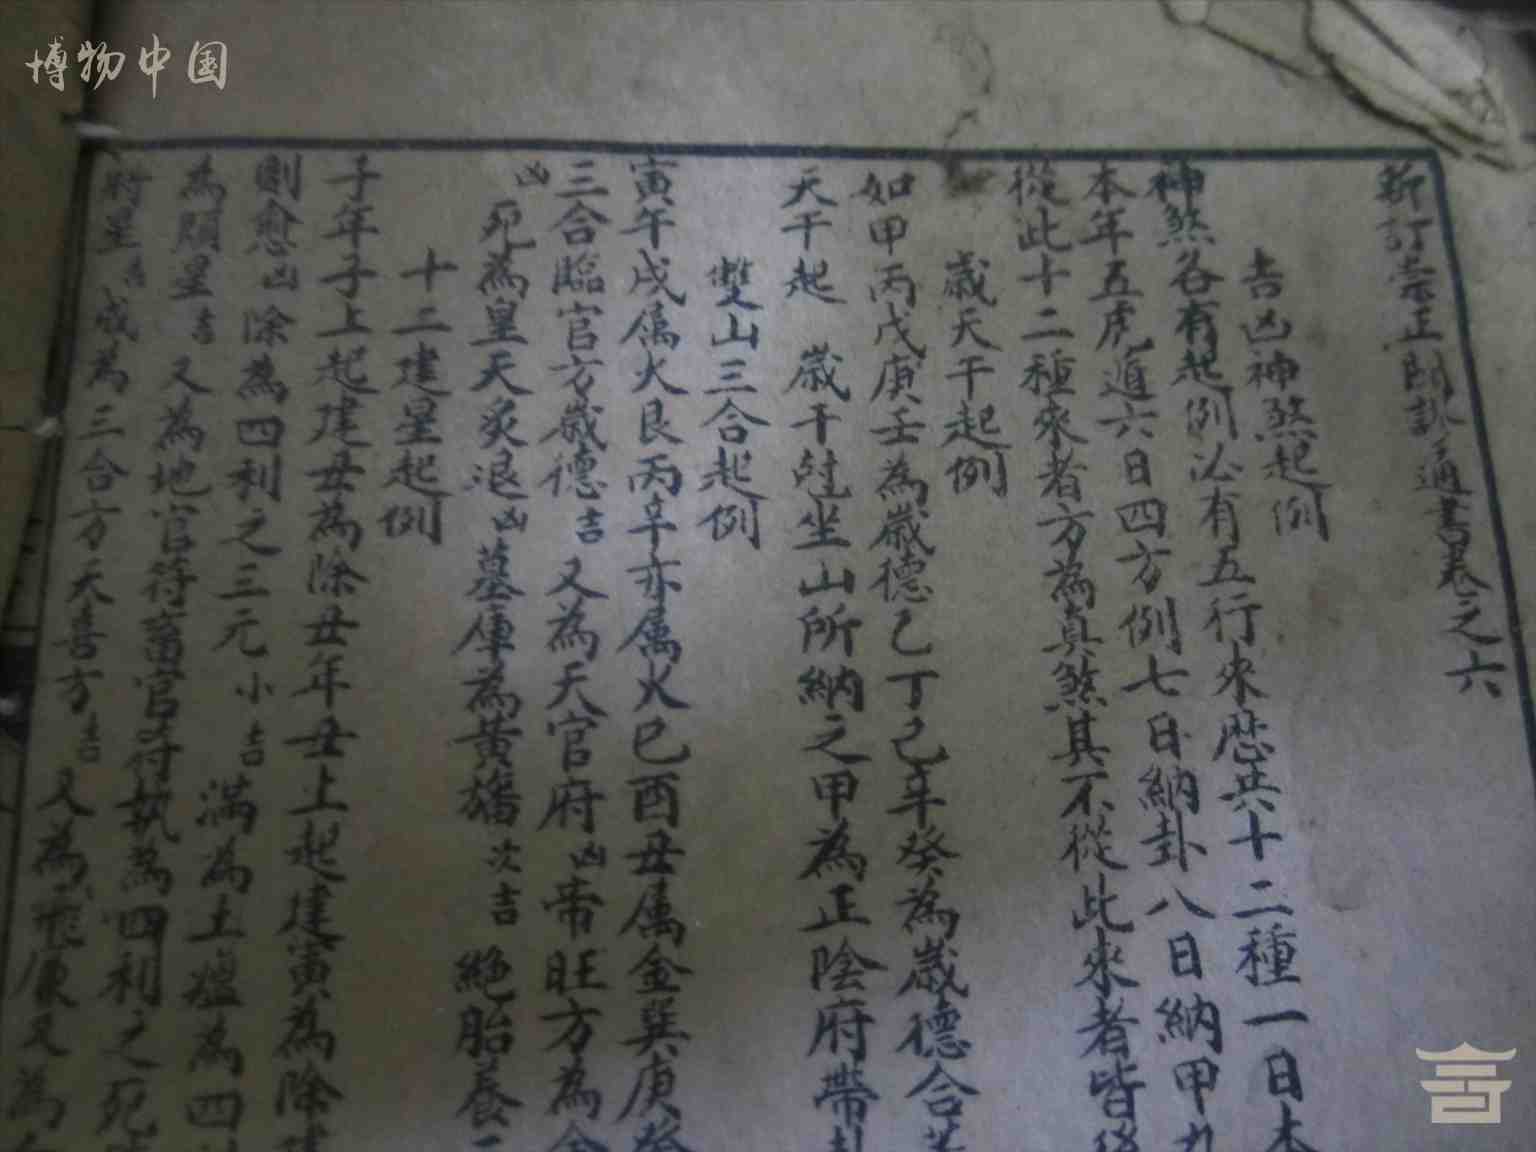 博物中国
新訂崇正闢謬通書卷之六
吉凶神煞起例
神煞各有起例必有五行來歷共十二種一曰本
本年五虎遁六曰四方例七曰納卦八曰納甲九
從此十二種來者方為真煞其不從此來者皆
歲天干起例
如甲丙戊庚壬為歲德乙丁己辛癸為歲德合
天干起 歲干尅坐山所納之甲為正陰府帶
雙山三合起例
寅午戌属火艮丙辛亦属火巳酉丑属金巽庚癸
三合臨官方歲德吉又為天官府凶帝旺方為金
凶死為皇天炙退凶墓庫為黃旛次吉絕胎養
十二建星起例
子年子上起建丑為除丑年丑上起建寅為除
則愈凶除為四利之三元小吉滿為土瘟為四
為顯星吉又為地官符畜官符執為四利之死
將星吉成為三合方天喜方吉又為飛廉又為